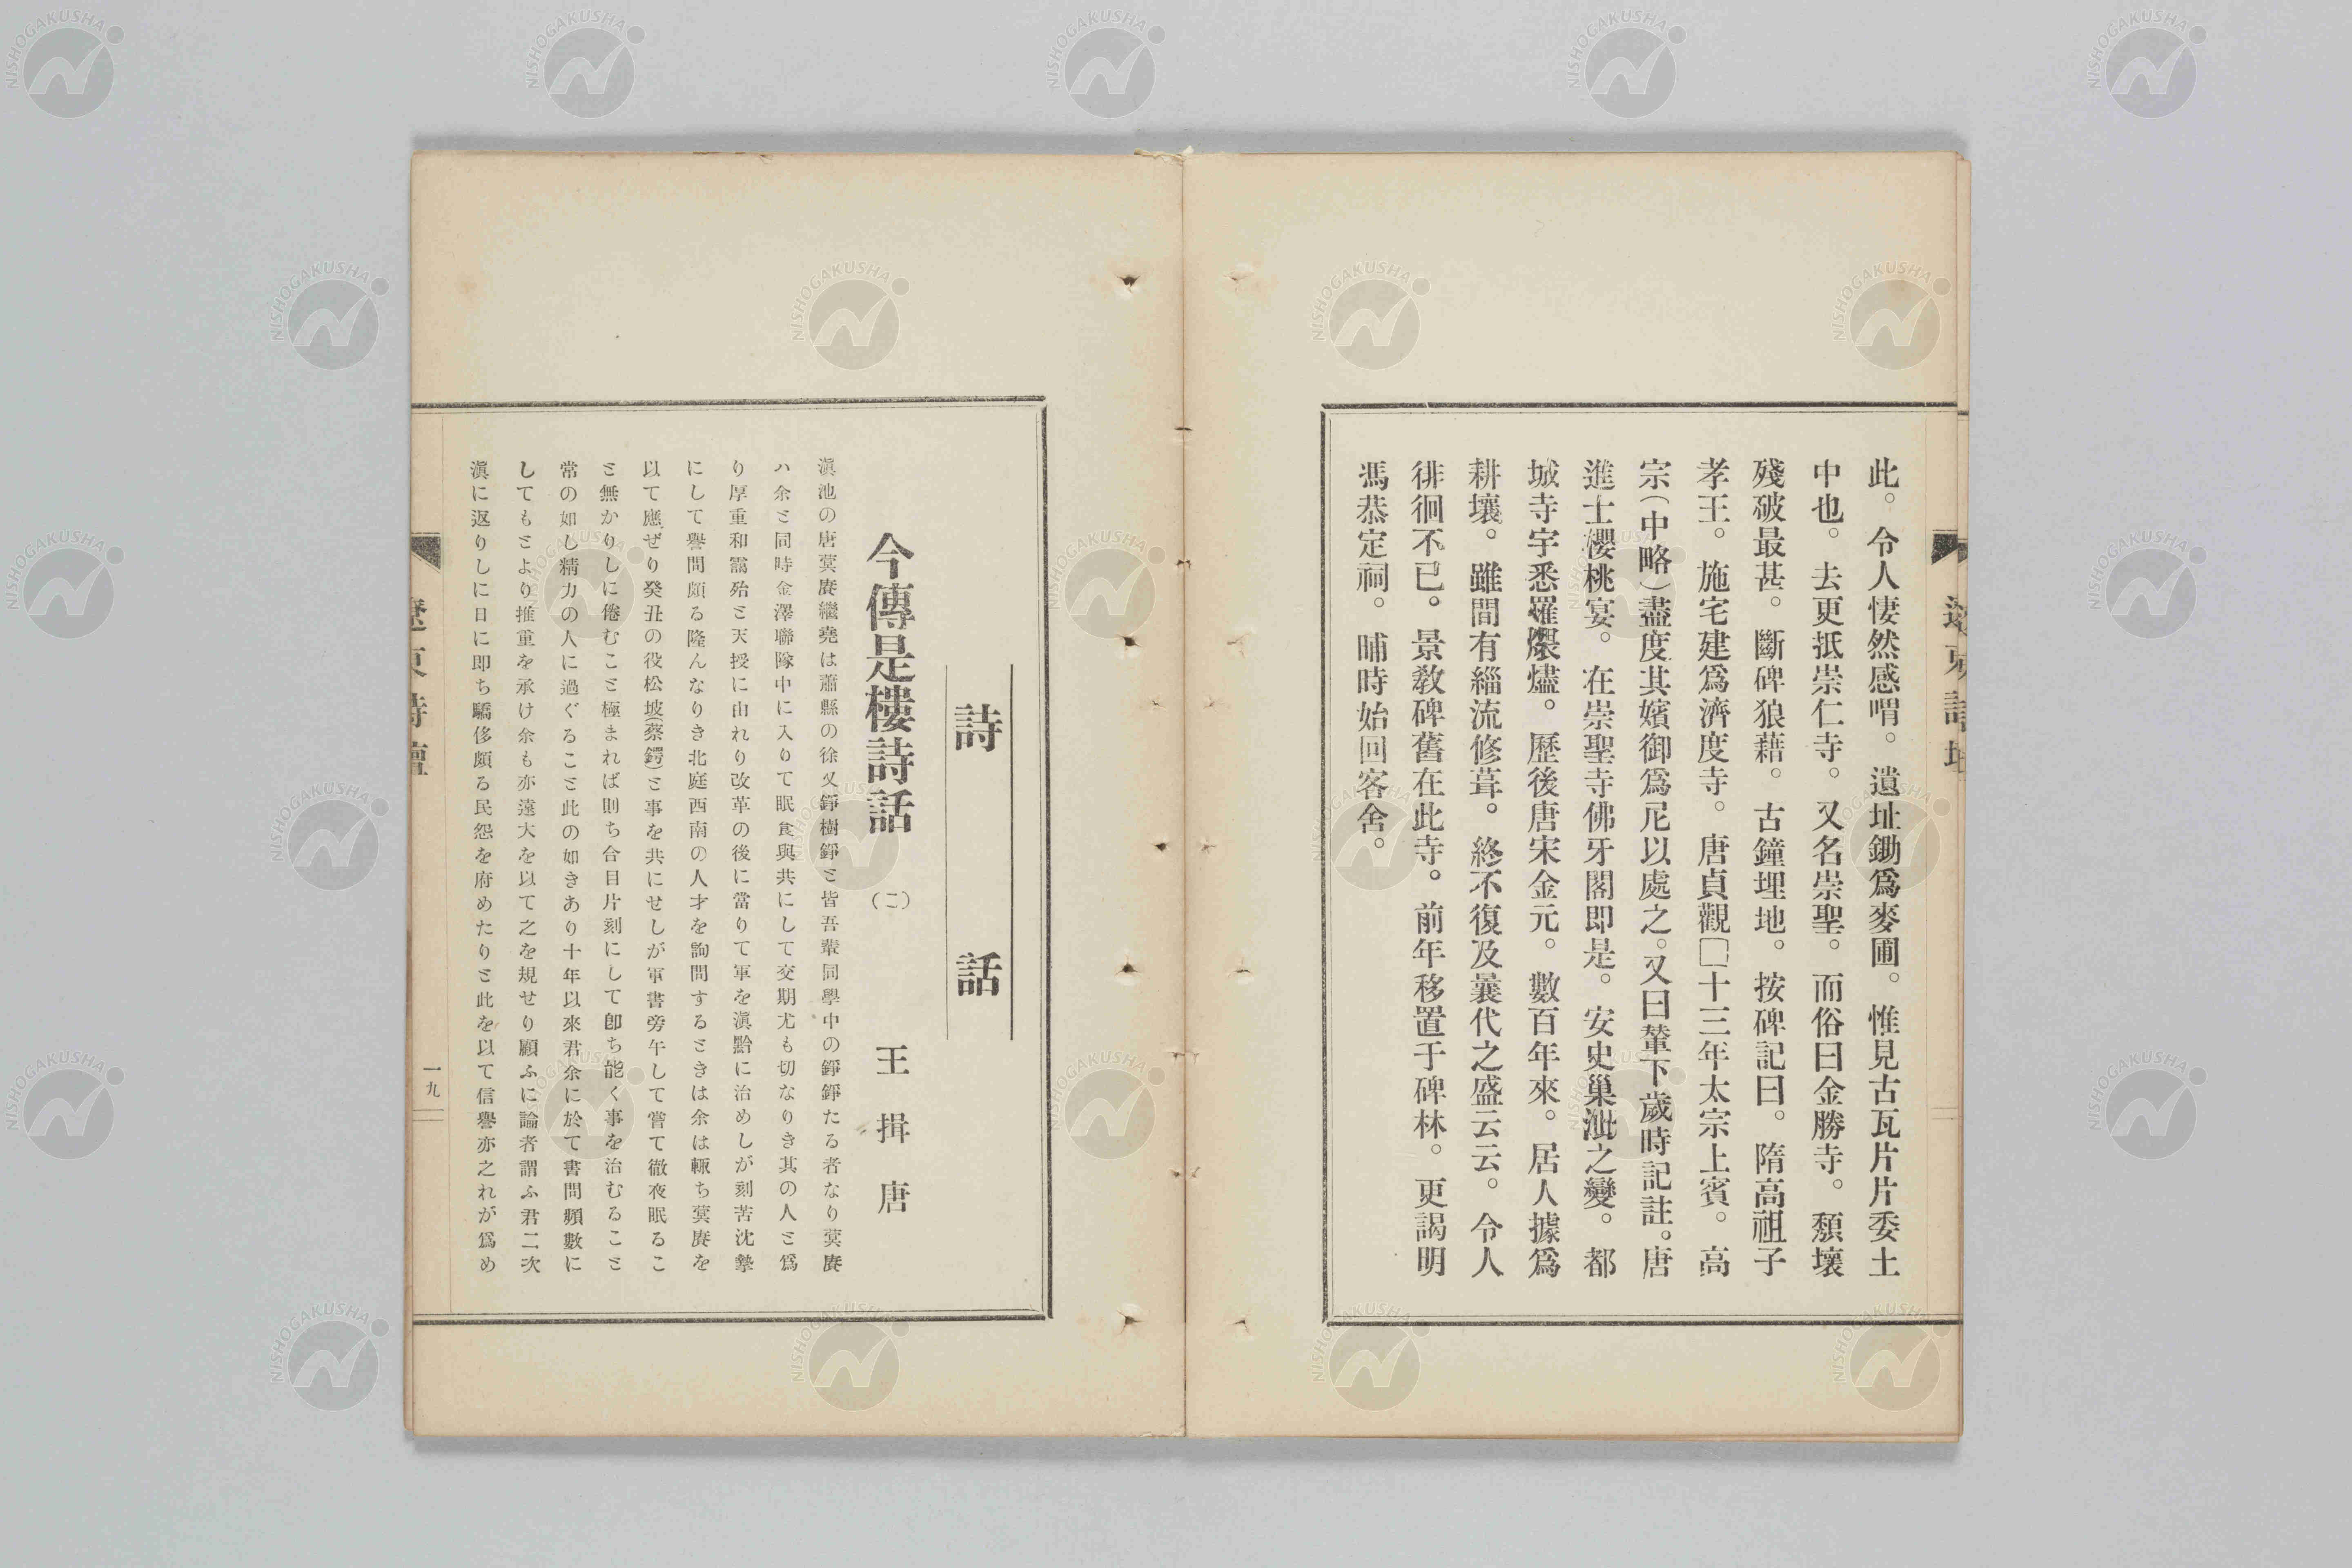 此。令人悽然感喟。遺址鋤爲麥圃。惟見古瓦片片委土
中也。去更抵崇仁寺。又名崇聖。而俗曰金勝寺。頽壞
殘破最甚。斷碑狼藉。古鐘埋地。按碑記曰。隋高祖子
孝王。施宅建爲濟度寺。唐貞觀□十三年太宗上賓。高
宗(中略)盡度其嬪御爲尼以處之。又曰輦下歲時記註。唐
進士櫻桃宴。在崇聖寺佛牙閣即是。安史巢之變。都
城寺宇悉罹煨燼。歷後唐宋金元。數百年來。居人據爲
耕壤。雖間有緇流修葺。終不復及曩代之盛云云。令人
徘徊不已。景教碑舊在此寺。前年移置于碑林。更謁明
馮恭定祠。晡時始回客舍。
詩話
今傳是樓詩話 (二) 王揖唐
滇池の唐蓂賡繼堯は蕭縣の徐又錚樹錚と皆吾輩同學中の錚錚たる者なり蓂賡
ハ余と同時金澤聯隊中に入りて眠食與共にして交期尤も切なりき其の人と爲
り厚重和靄殆と天授に由れり改革の後に當りて軍を滇黔に治めしが刻苦沈摯
にして譽問頗る隆んなりき北庭西南の人才を詢問するときは余は輒ち蓂賡を
以て應ぜり癸丑の役松坡(蔡鍔)と事を共にせしが軍書旁午して嘗て徹夜眠るこ
と無かりしに倦むこと極まれば則ち合目片刻にして卽ち能く事を治むること
常の如し精力の人に過ぐること此の如きあり十年以來君余に於て書問頻數に
してもとより推重を承け余も亦遠大を以て之を規せり顧ふに論者謂ふ君二次
滇に返りしに日に即ち驕侈頗る民怨を府めたりと此を以て信譽亦之れが爲め
一九
NISHOGAKUSHA